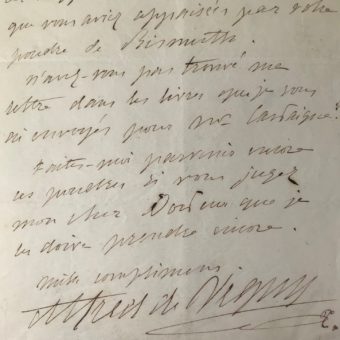 que vous aviez appaisées par votre
poudre de Bismuth.
n'avez-vous pas trouvé ma
lettre dans les livres que je vous
ai envoyés pour
Faites-moi parvenir encore
ces poudres si vous jugez
mon cher Docteur que je
les doive prendre encore.
mille complimens
Alfred de Vigny